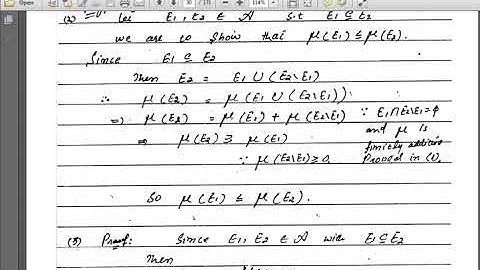 (2) Let E1, E2 ∈ A s.t E1 ⊆ E2
we are to show that μ(E1) ≤ μ(E2).
Since E1 ⊆ E2
Then E2 = E1 ∪ (E2\E1)
∴ μ(E2) = μ(E1 ∪ (E2\E1))
⇒ μ(E2) = μ(E1) + μ(E2\E1) ∵ E1∩E2\E1=φ
and μ is
finitely additive
Proved in (1).
⇒ μ(E2) ≥ μ(E1)
∵ μ(E2\E1) ≥ 0
So μ(E1) ≤ μ(E2).
(3) Proof: Since E1, E2 ∈ A with E1 ⊆ E2
Then